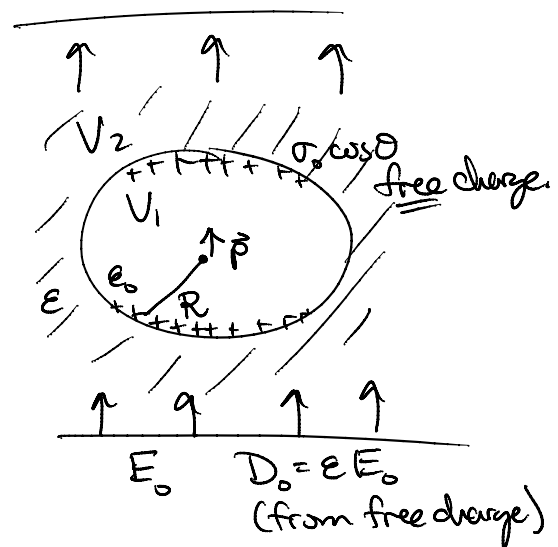 V₂
σ₀ cosθ
free charge.
V₁
p⃗
ε₀
R
ε
E₀ D₀ = εE₀
(from free charge)